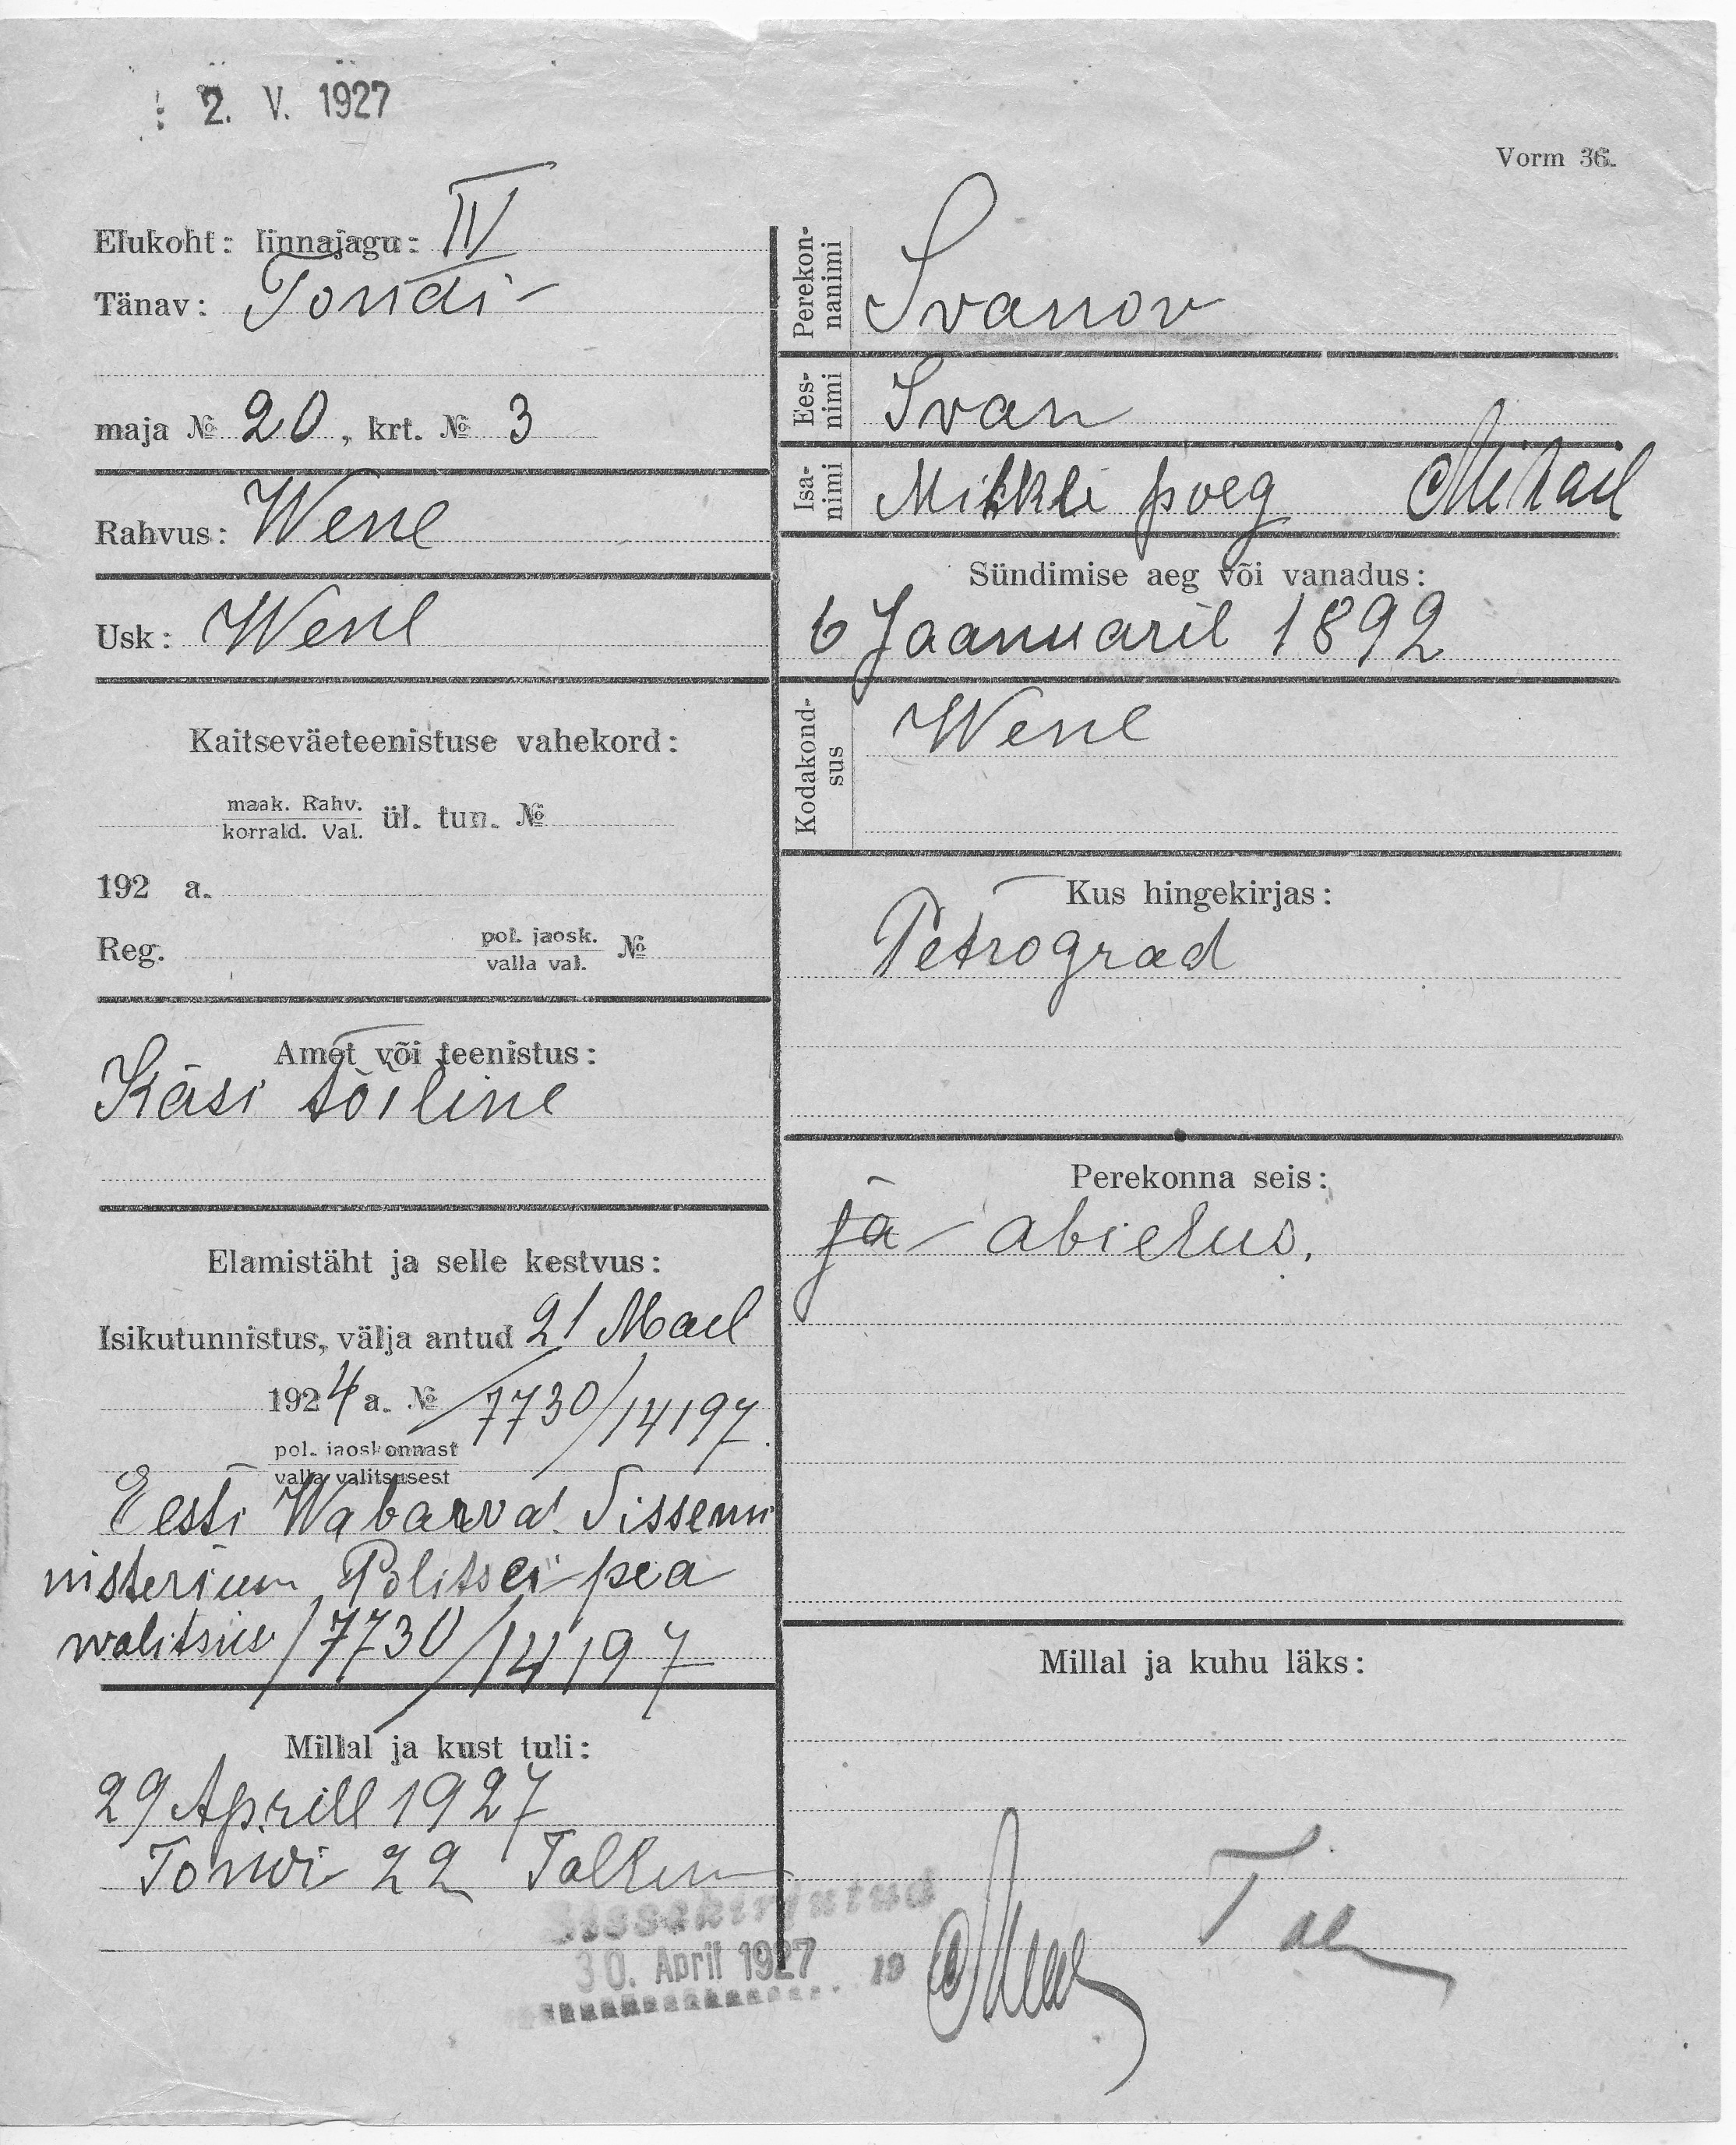 2. V. 1927
Vorm 36.
Elukoht: linnajagu: IV
Tänav: Tondi -
maja № 20, krt. № 3
Rahvus: Wene
Usk: Wene
Kaitseväeteenistuse vahekord:
maak. Rahv.
korrald. Val. ül. tun. №
192 a.
Reg. pol. jaosk.
valla val. №
Amet või teenistus:
Käsi töiline
Elamistäht ja selle kestvus:
Isikutunnistus, välja antud 21 Mael
1924 a. № 7730/14197
pol. jaoskonnast
valla valitsusest
Eesti Wabarva! Sissemi
nisterium Politsei pea
walitsus /7730/14197
Millal ja kust tuli:
29 Aprill 1927
Tondi 22 Tallin
Perekon-
nanimi Ivanov
Ees-
nimi Ivan
Isa-
nimi Mihkli poeg Mihail
Sündimise aeg või vanadus:
6 Jaanuaril 1892
Kodakond-
sus Wene
Kus hingekirjas:
Petrograd
Perekonna seis:
ja - abielus.
Millal ja kuhu läks:
Sissekirjutud
30. April 1927 19